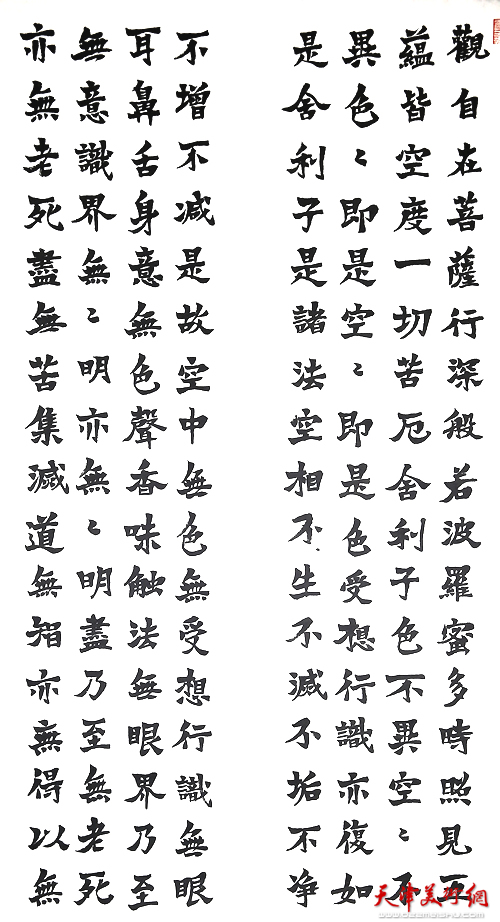 觀自在菩薩行深般若波羅蜜多時照見五
蘊皆空度一切苦厄舍利子色不異空〻不
異色〻即是空〻即是色受想行識亦復如
是舍利子是諸法空相不生不滅不垢不净
不增不減是故空中無色無受想行識無眼
耳鼻舌身意無色聲香味触法無眼界乃至
無意識界無〻明亦無〻明盡乃至無老死
亦無老死盡無苦集滅道無智亦無得以無
天津美术網